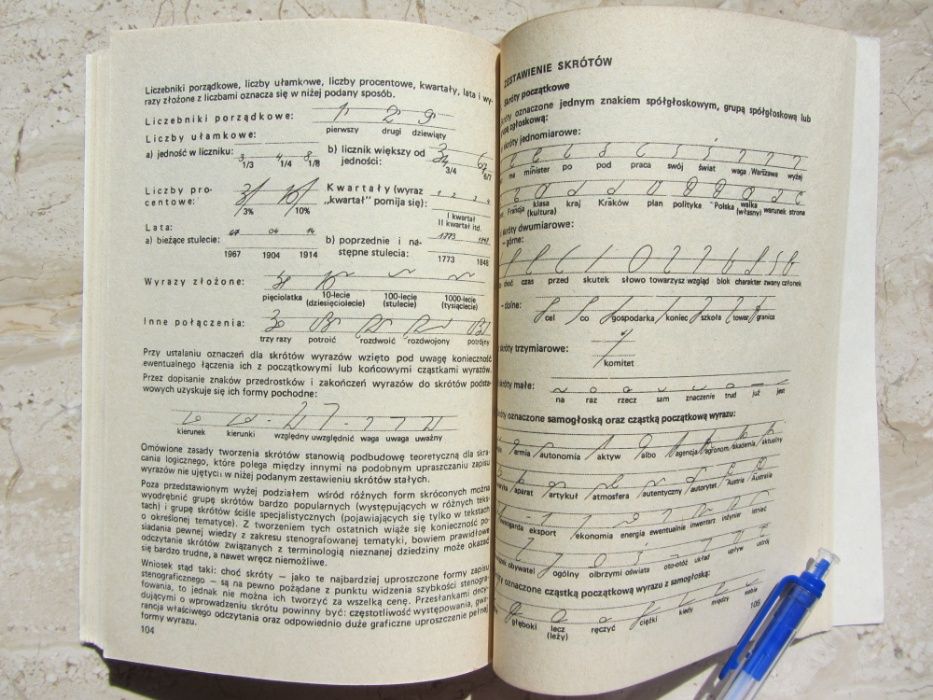 Liczebniki porządkowe, liczby ułamkowe, liczby procentowe, kwartały, lata i wy-
razy złożone z liczbami oznacza się w niżej podany sposób.
Liczebniki porządkowe:
pierwszy drugi dziewiąty
Liczby ułamkowe:
a) jedność w liczniku: b) licznik większy od
jedności:
1/3 1/4 1/8 3/4 6/7
Liczby pro-
centowe:
3% 10%
Kwartały (wyraz
„kwartał" pomija się):
I kwartał
II kwartał itd.
Lata:
a) bieżące stulecie: b) poprzednie i na-
stępne stulecia:
1967 1904 1914 1773 1848
Wyrazy złożone:
pięciolatka 10-lecie 100-lecie 1000-lecie
(dziesięciolecie) (stulecie) (tysiąclecie)
Inne połączenia:
trzy razy potroić rozdwoić rozdwojony potrójny
Przy ustalaniu oznaczeń dla skrótów wyrazów wzięto pod uwagę konieczność
ewentualnego łączenia ich z początkowymi lub końcowymi cząstkami wyrazów.
Przez dopisanie znaków przedrostków i zakończeń wyrazów do skrótów podsta-
wowych uzyskuje się ich formy pochodne:
kierunek kierunki względny uwzględnić waga uwaga uważny
Omówione zasady tworzenia skrótów stanowią podbudowę teoretyczną dla skra-
cania logicznego, które polega między innymi na podobnym upraszczaniu zapisu
wyrazów nie ujętych w niżej podanym zestawieniu skrótów stałych.
Poza przedstawionym wyżej podziałem wśród różnych form skróconych można
wyodrębnić grupę skrótów bardzo popularnych (występujących w różnych teks-
tach) i grupę skrótów ściśle specjalistycznych (pojawiających się tylko w tekstach
o określonej tematyce). Z tworzeniem tych ostatnich wiąże się konieczność po-
siadania pewnej wiedzy z zakresu stenografowanej tematyki, bowiem prawidłowe
odczytanie skrótów związanych z terminologią nieznanej dziedziny może okazać
się bardzo trudne, a nawet wręcz niemożliwe.
Wniosek stąd taki: choć skróty – jako te najbardziej uproszczone formy zapisu
stenograficznego – są na pewno pożądane z punktu widzenia szybkości stenogra-
fowania, to jednak nie można ich tworzyć za wszelką cenę. Przesłankami decy-
dującymi o wprowadzeniu skrótu powinny być: częstotliwość występowania, gwa-
rancja właściwego odczytania oraz odpowiednio duże graficzne uproszczenie pełnej
formy wyrazu.
104
ZESTAWIENIE SKRÓTÓW
Skróty początkowe
oznaczone jednym znakiem spółgłoskowym, grupą spółgłoskową lub
zgłoskową:
skróty jednomiarowe:
ma minister po pod praca swój świat waga Warszawa wyżej
Francja klasa kraj Kraków plan polityka Polska walka warunek strona
(kultura) (własny)
skróty dwumiarowe:
– górne:
choć czas przed skutek słowo towarzysz wzgląd blok charakter zwany członek
– dolne:
cel co gospodarka koniec szkoła towar granica
skróty trzymiarowe:
komitet
skróty małe:
na raz rzecz sam znaczenie trud już jest
oznaczone samogłoską oraz cząstką początkową wyrazu:
armia autonomia aktyw albo agencja agronom akademia aktualny
aparat artykuł atmosfera autentyczny autorytet Austria Australia
eksport ekonomia energia ewentualnie inwentarz inżynier istnieć
obywatel ogólny olbrzymi oświata oto-otóż układ upływ ustrój
oznaczone cząstką początkową wyrazu z samogłoską:
głęboki lecz ręczyć ciężki kiedy między siebie
(leży)
105